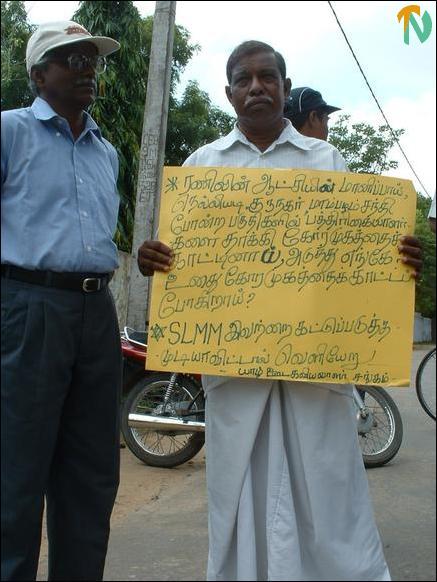 TN
* ரணிலின் ஆட்சியின் மானிப்பாய்
நெல்லியடி குருநகர் மாம்பழம்சந்தி
போன்ற பகுதிகளில் பத்திரிகையாளர்
களை தாக்கி கோரமுகத்தைக்
காட்டினாய், அடுத்து எங்கே
உனது கோரமுகத்தைக்காட்டப்
போகிறாய்?
* SLMM இவற்றை கட்டுப்படுத்த
முடியாவிட்டால் வெளியேறு !
யாழ் ஊடகவியலாளர் சங்கம்